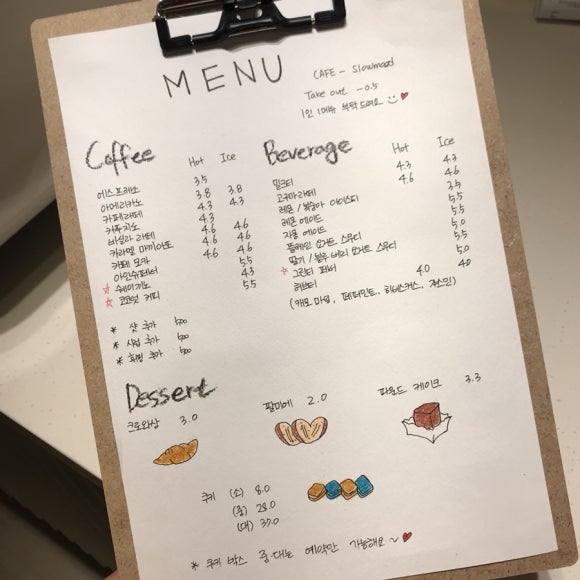 MENU
CAFE - Slowmood
Take out -0.5
1인 1메뉴 부탁드려요
Coffee Hot Ice
에스프레소 3.5
아메리카노 3.8 3.8
카페라떼 4.3 4.3
카푸치노 4.3
바닐라 라떼 4.6 4.6
카라멜 마끼아또 4.6 4.6
카페 모카 4.6 4.6
아인슈페너 5.5
쉐이키노 4.3
코코넛 커피 5.5
* 샷 추가 500
* 시럽 추가 500
* 휘핑 추가 500
Beverage Hot Ice
밀크티 4.3 4.3
고구마라떼 4.6 4.6
레몬 / 복숭아 아이스티 3.5
레몬 에이드 5.5
자몽 에이드 5.5
플레인 요거트 스무디 5.0
딸기 / 블루베리 요거트 스무디 5.5
그린티 페너 5.0
허브티 4.0 4.0
(캐모마일, 페퍼민트, 히비스커스, 자스민)
Dessert
크로와상 3.0
팔미에 2.0
파운드 케이크 3.3
쿠키 (소) 8.0
(중) 28.0
(대) 37.0
* 쿠키 박스 중 대는 예약만 가능해요~